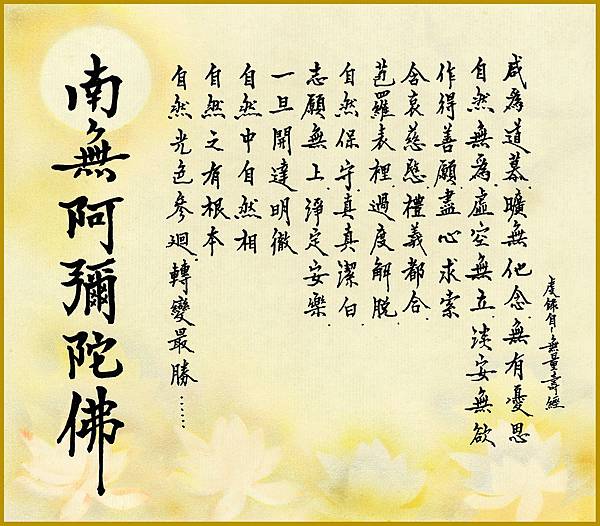 虔錄自~無量壽經
咸為道慕.曠無他念.無有憂思
自然無為.虛空無立.淡安無欲
作得善願.盡心求索
含哀慈愍.禮義都合.
苞羅表裡.過度解脫.
自然保守.真真潔白.
志願無上.淨定安樂.
一旦開達明徹
自然中自然相
自然之有根本
自然光色參迴.轉變最勝……
南無阿彌陀佛